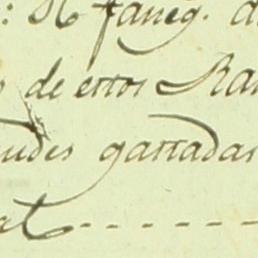 faneg. d
de estos Ra
udes gastadas
at